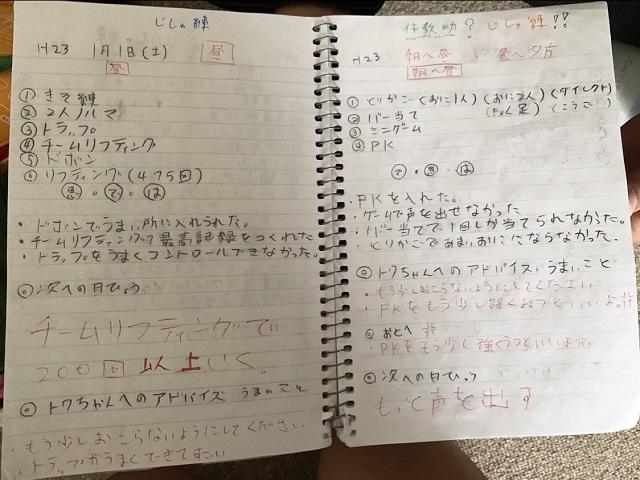 じしゅ練
H23 1月1日(土) 昼
昼
① きそ練
② 2人ノルマ
③ トラップ
④ チームリフティング
⑤ ドボン
⑥ リフティング(475回)
思・で・は
・ドボンでうまい所に入れられた。
・チームリフティングで最高記録をつくれた
・トラップをうまくコントロールできなかった。
◎次への目ひょう
チームリフティングで
200回以上いく。
◎トワちゃんへのアドバイス・うまいこと
・もう少しおこらないようにしてください
・トラップがうまくできてすごい
? じしゅ練!!
H23 朝へ昼 昼へ夕方
朝へ昼
① とりかご(おに1人)(おに2人)(ダイレクト)
(ぎゃく足)(こうご)
② バー当て
③ ミニゲーム
④ PK
で・思・は
・PKを入れた。
・ゲームで声を出せなかった
・バー当てで1回しか当てられなかった。
・とりかごであまりおににならなかった。
◎トワちゃんへのアドバイス・うまいこと
・もう少しおこらないようにしてください
・PKをもう少し強くうつといいよ。
◎おとへ
・PKをもう少し強くうつといいよ。
◎次への目ひょう
もっと声を出す